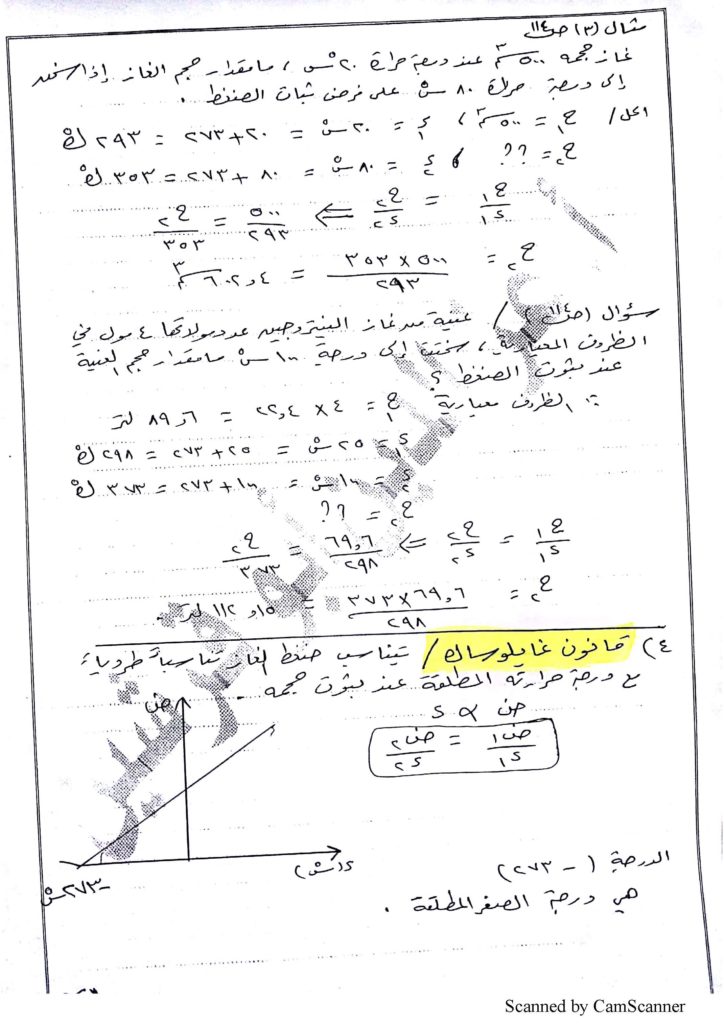 مثال (٣) ص ١١٤
غاز حجمه ٥٠٠ سم٣ عند درجة حرارة ٢٠ س° ، ما مقدار حجم الغاز إذا سخن
إلى درجة حرارة ٨٠ س° على فرض ثبات الضغط .
الحل / ح١ = ٥٠٠ سم٣ ، د١ = ٢٠ س° = ٢٠ + ٢٧٣ = ٢٩٣ ك°
ح٢ = ؟؟ ، د٢ = ٨٠ س° = ٨٠ + ٢٧٣ = ٣٥٣ ك°
ح١/د١ = ح٢/د٢ ⇐ ٥٠٠/٢٩٣ = ح٢/٣٥٣
ح٢ = ٥٠٠ × ٣٥٣ / ٢٩٣ = ٦٠٢,٤ سم٣
سؤال (ص ١١٤) / عينة من غاز النيتروجين عدد مولاتها ٤ مول في
الظروف المعيارية ، سخنت إلى درجة ١٠٠ س° ما مقدار حجم العينة
عند ثبوت الضغط ؟
∵ الظروف معيارية ح١ = ٤ × ٢٢,٤ = ٨٩,٦ لتر
د١ = ٢٥ س° = ٢٥ + ٢٧٣ = ٢٩٨ ك°
د٢ = ١٠٠ س° = ١٠٠ + ٢٧٣ = ٣٧٣ ك°
ح٢ = ؟؟
ح١/د١ = ح٢/د٢ ⇐ ٦٩,٦/٢٩٨ = ح٢/٣٧٣
ح٢ = ٣٧٣×٦٩,٦ / ٢٩٨ = ١١٢,١٥ لتر .
٤) قانون غايلوساك / يتناسب ضغط الغاز تناسباً طردياً
مع درجة حرارته المطلقة عند ثبوت حجمه .
ض
ض α د
ض١/د١ = ض٢/د٢
د(س°)
-٢٧٣ س°
الدرجة (- ٢٧٣)
هي درجة الصفر المطلقة .
Scanned by CamScanner